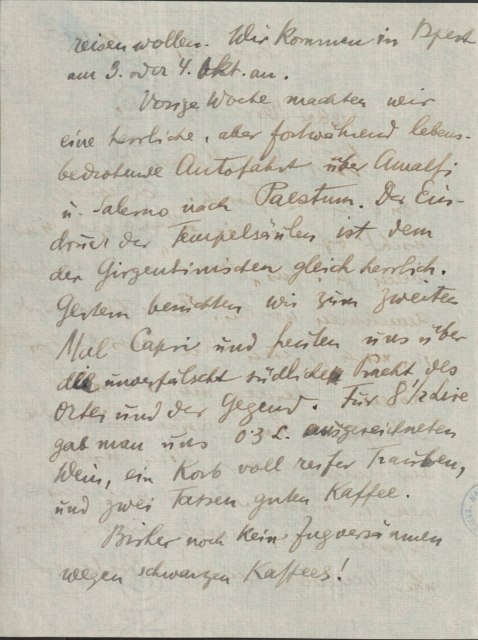 reisen wollen. Wir kommen in Bpest
am 3. oder 4. Okt. an.
Vorige Woche machten wir
eine herrliche, aber fortwährend lebens-
bedrohende Autofahrt über Amalfi
u. Salerno nach Paestum. Der Ein-
druck der Tempelsäulen ist dem
der Girgentinischen gleich herrlich.
Gestern besuchten wir zum zweiten
Mal Capri und freuten uns über
die unverfälscht südliche Pracht des
Ortes und der Gegend. Für 8 1/2 Lire
gab man uns 0.3 L. ausgezeichneten
Wein, ein Korb voll reifer Trauben,
und zwei Tassen guten Kaffee.
Bisher noch kein Zugversäumen
wegen schwarzen Kaffees!